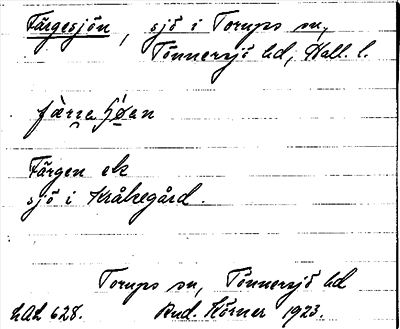 Färgesjön, sjö i Torups sn,
Tönnersjö hd, Hall. l.
Färgen el
sjö i Kråkegård.
Torups sn, Tönnersjö hd
LAL 628. Rud. Körner 1923.